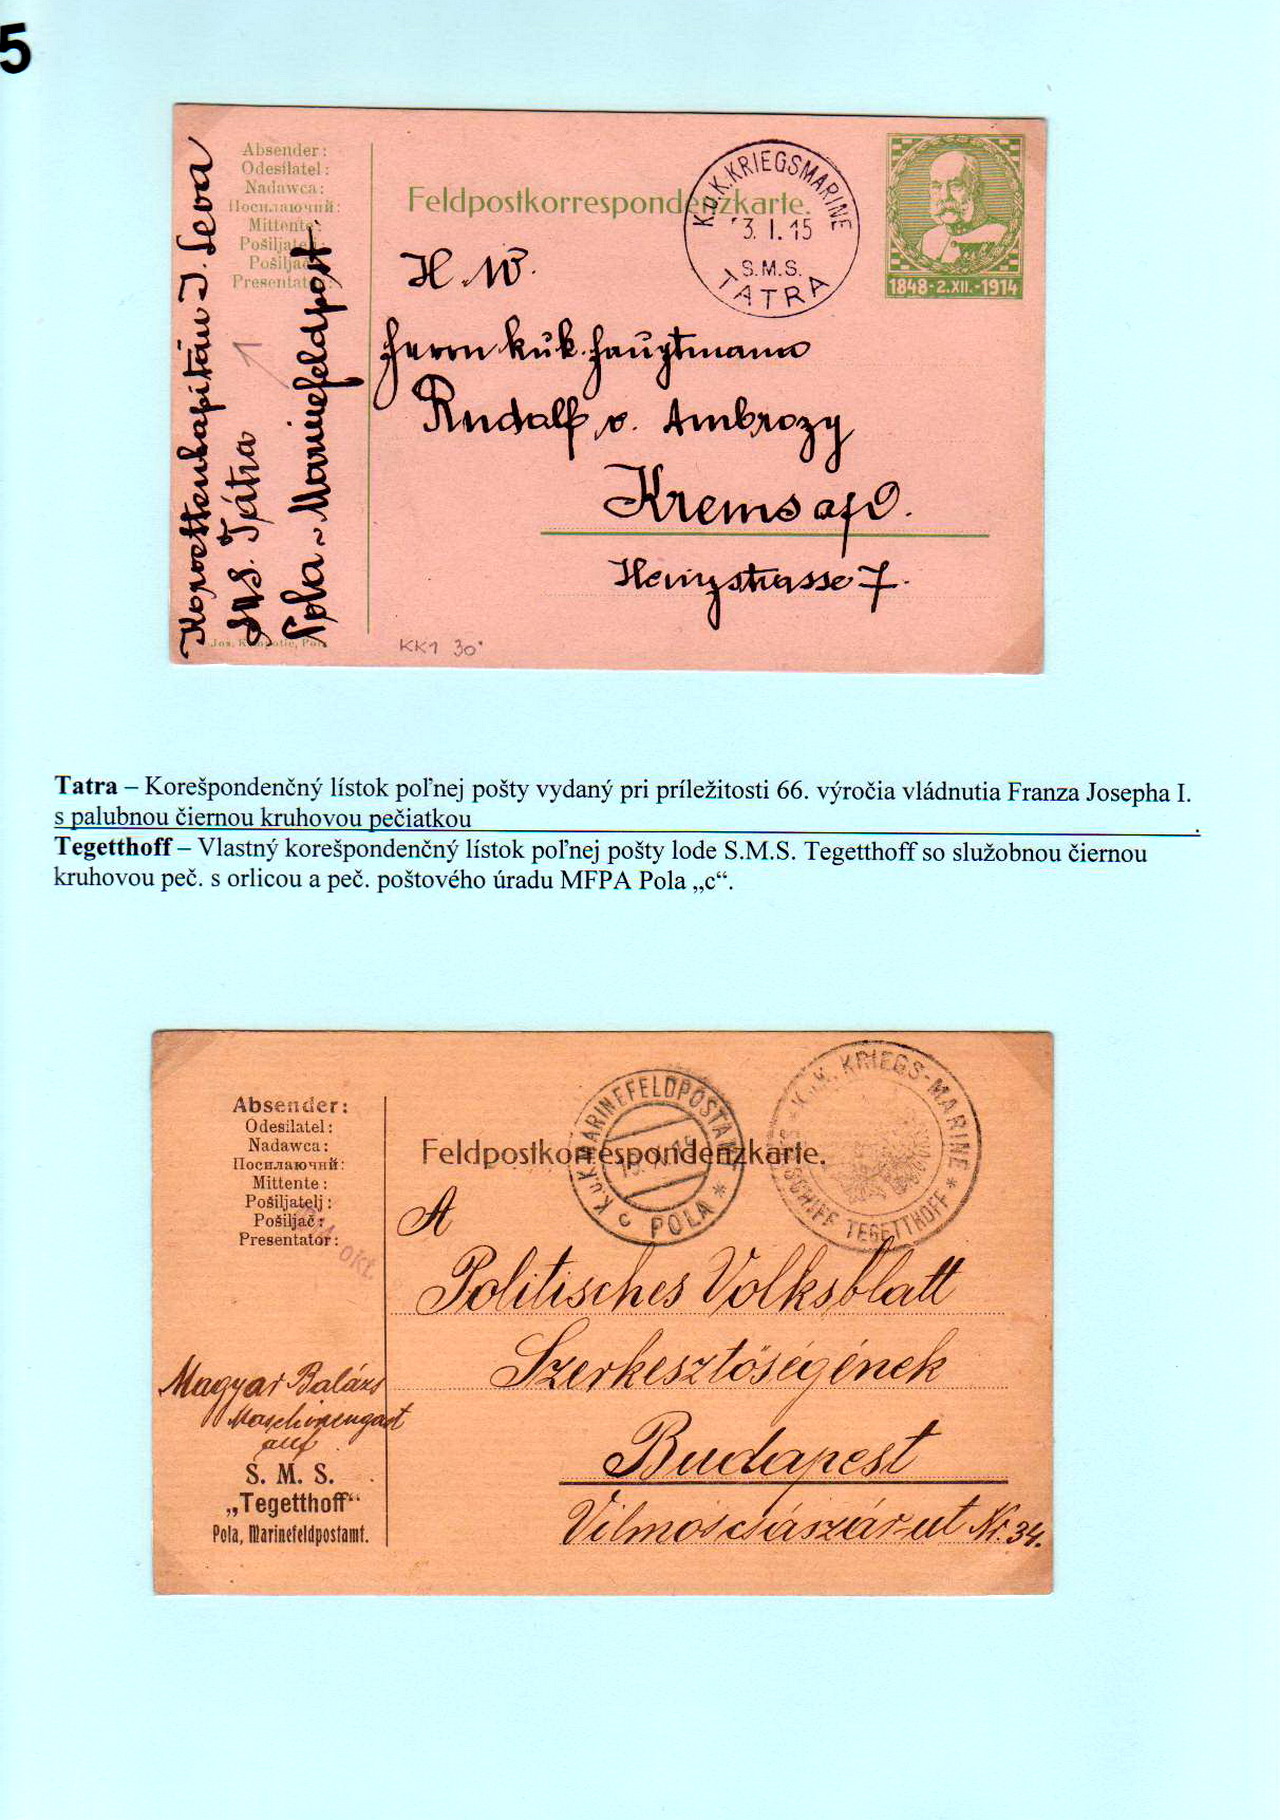 5
Absender:
Odesílatel:
Nadawca:
Посилаючий:
Mittente:
Pošiljatelj:
Pošiljač:
Presentator:
Feldpostkorrespondenzkarte.
K.U.K. KRIEGSMARINE
3. I. 15
S.M.S.
TATRA
1848-2.XII.-1914
Korvettenkapitän J. Seva
S.M.S. Tátra
Pola ~ Marinefeldpost
H. W.
Herrn k.u.k. Hauptmann
Rudolf v. Ambrozy
Krems a/D.
7.
KK1 30
Tatra – Korešpondenčný lístok poľnej pošty vydaný pri príležitosti 66. výročia vládnutia Franza Josepha I.
s palubnou čiernou kruhovou pečiatkou .
Tegetthoff – Vlastný korešpondenčný lístok poľnej pošty lode S.M.S. Tegetthoff so služobnou čiernou
kruhovou peč. s orlicou a peč. poštového úradu MFPA Pola „c“.
Absender:
Odesílatel:
Nadawca:
Посилаючий:
Mittente:
Pošiljatelj:
Pošiljač:
Presentator:
OKT.
Feldpostkorrespondenzkarte.
K.u.K. MARINEFELDPOSTAMT
c POLA *
K.u.K. KRIEGS-MARINE *
SCHIFF TEGETTHOFF *
A
Politisches Volksblatt
Szerkesztőségének
Budapest
Vilmos császár-ut Nr. 34.
Magyar Balázs
Maschinengast
auf
S. M. S.
„Tegetthoff“
Pola, Marinefeldpostamt.